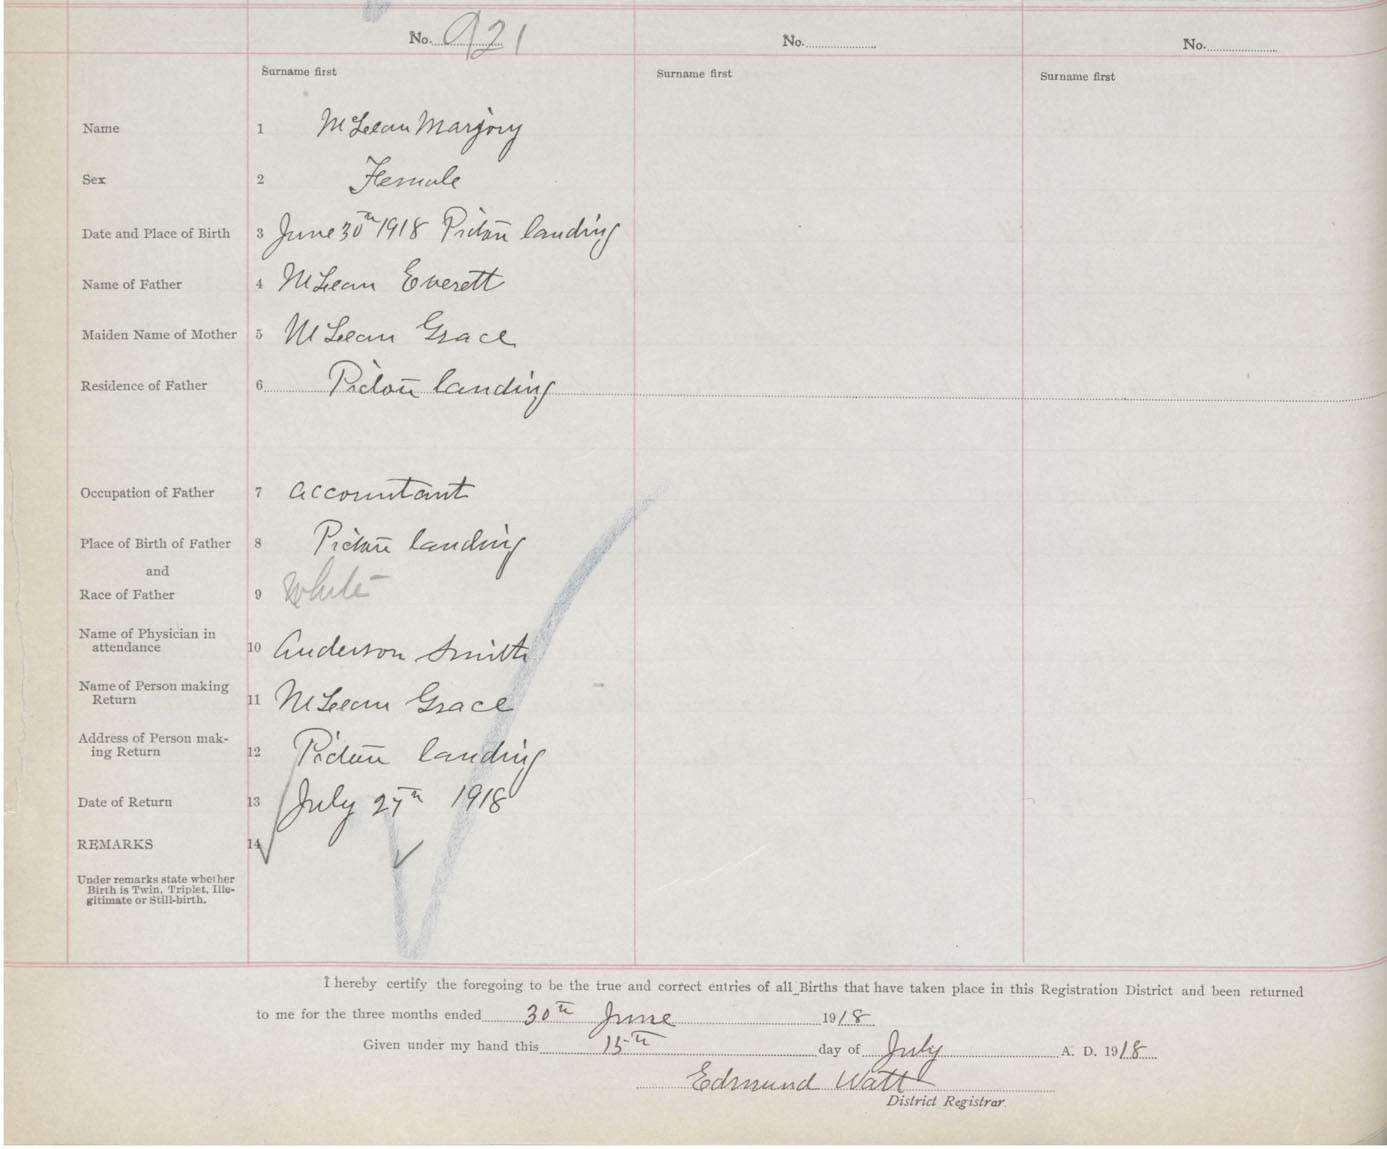 No. 921 No. No.
Surname first Surname first Surname first
Name 1 McLean Marjory
Sex 2 Female
Date and Place of Birth 3 June 30th 1918 Pictou landing
Name of Father 4 McLean Everett
Maiden Name of Mother 5 McLean Grace
Residence of Father 6 Pictou landing
Occupation of Father 7 accountant
Place of Birth of Father 8 Pictou landing
and
Race of Father 9 White
Name of Physician in
attendance 10 Anderson Smith
Name of Person making
Return 11 McLean Grace
Address of Person mak-
ing Return 12 Pictou landing
Date of Return 13 July 27th 1918
REMARKS 14
Under remarks state whether
Birth is Twin, Triplet, Ille-
gitimate or Still-birth.
I hereby certify the foregoing to be the true and correct entries of all Births that have taken place in this Registration District and been returned
to me for the three months ended 30th June 1918
Given under my hand this 15th day of July A. D. 1918
Edmund Watt
District Registrar.